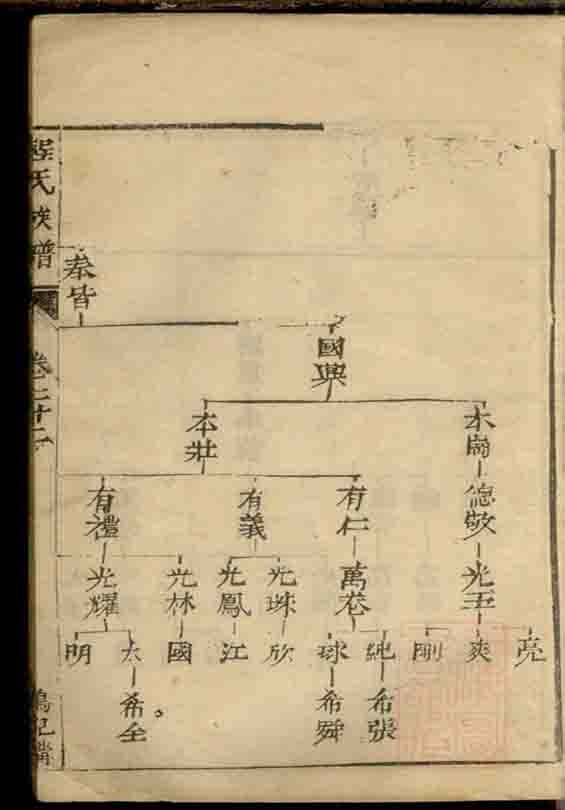 程氏族譜
奉皆
國興
本崗
本莊
德敬
有仁
有義
有禮
光玉
萬卷
光珠
光鳳
光林
光耀
亮
爽
剛
純
球
欣
江
國
太
明
希張
希舜
希全